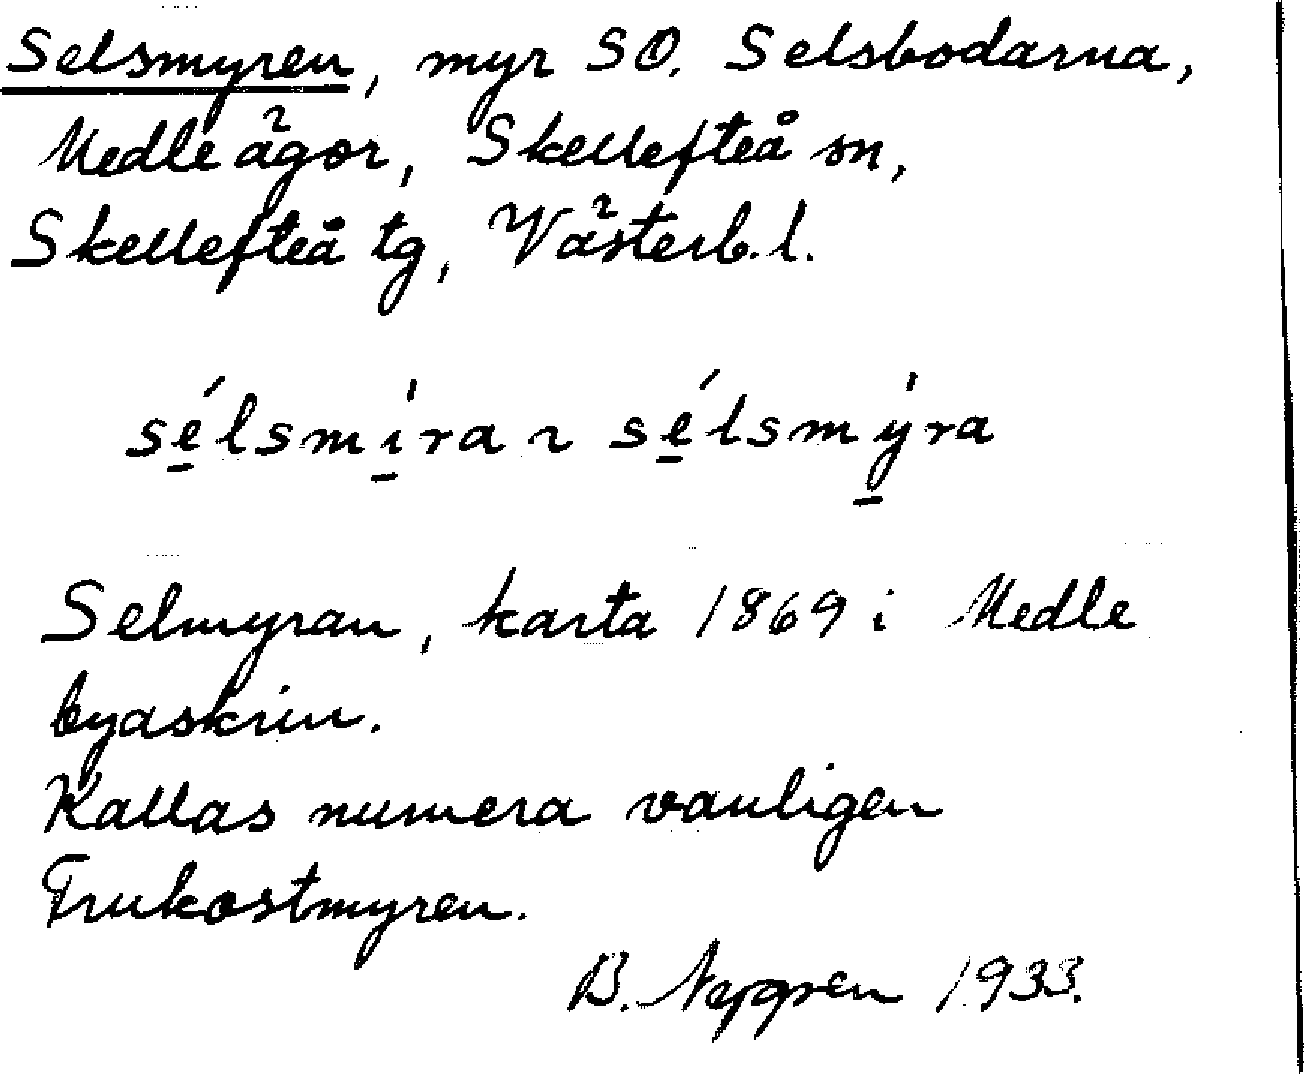 Selsmyren, myr SO. Selsbodarna,
Medle ägor, Skellefteå sn,
Skellefteå tg, Västerb. l.
sé̱lsmi̱̍ra ~ sé̱lsmy̱̍ra
Selmyran, karta 1869 i Medle
byaskrin.
Kallas numera vanligen
Frukostmyren.
B. Nygren 1933.